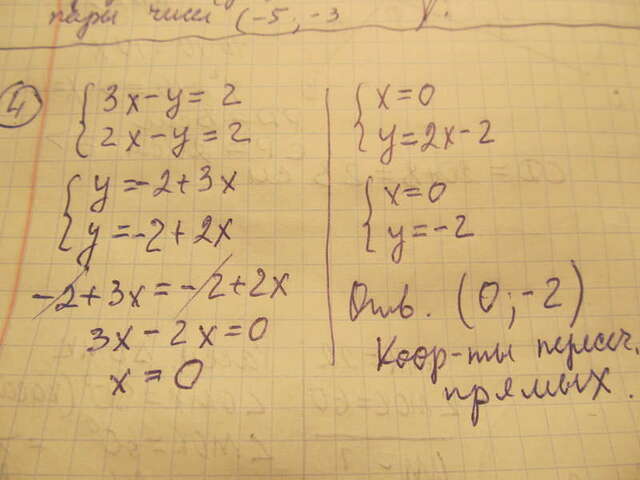 пары чисел (-5; -3 ).
4
3x-y=2
2x-y=2
y=-2+3x
y=-2+2x
-2+3x=-2+2x
3x-2x=0
x=0
x=0
y=2x-2
x=0
y=-2
Отв. (0;-2)
Коор-ты пересеч.
прямых.